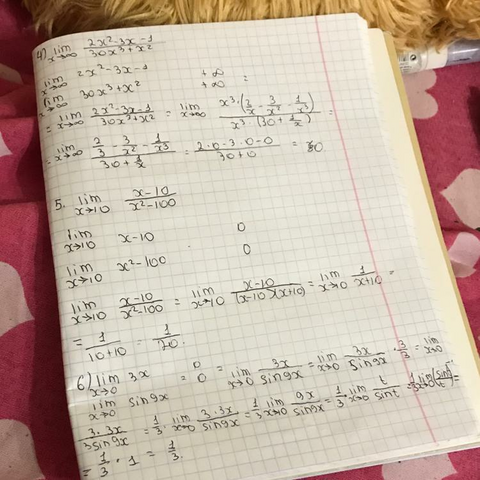 4) lim x→∞ (2x²-3x-1)/(30x³+x²)
lim x→∞ 2x²-3x-1 +∞
lim x→∞ 30x³+x² +∞ =
= lim x→∞ (2x²-3x-1)/(30x³+x²) = lim x→∞ x³·(2/x - 3/x² - 1/x³)/x³·(30+1/x) =
= lim x→∞ - 3/x² - 1/x³/30+1/x = 2·0-3·0-0/30+0 =
5. lim x→10 (x-10)/(x²-100)
lim x→10 x-10 0
lim x→10 x²-100 0
lim x→10 (x-10)/(x²-100) = lim x→10 (x-10)/(x-10)(x+10) = lim 1/(x+10) =
= 1/(10+10) = 1/20.
6) lim x→0 3x = 0/0 = lim x→0 3x/sin9x = lim x→0 3x/sin9x · 3/3 = lim x→0
lim x→0 sin9x
3·3x/3sin9x = 1/3 · lim x→0 3·3x/sin9x = 1/3 lim x→0 9x/sin9x = 1/3 · lim x→0 t/sint = 1/3 lim (sint/t)⁻¹ =
= 1/3 · 1 = 1/3.